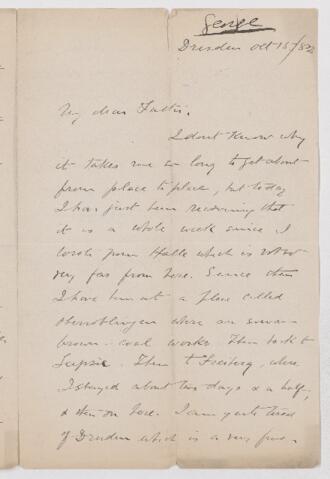 George
Dresden Oct 15/82
My dear Father,
I don't know why
it takes me so long to get about
from place to place, but today
I have just been reckoning that
it is a whole week since I
wrote from Halle which is not
very far from here. Since then
I have been at a place called
Oberröblingen where are
brown-coal works. Then back to
Leipsic. Then to Freiberg, where
I stayed about two days & a half,
& then on here. I am quite tired
of Dresden which is a very fine